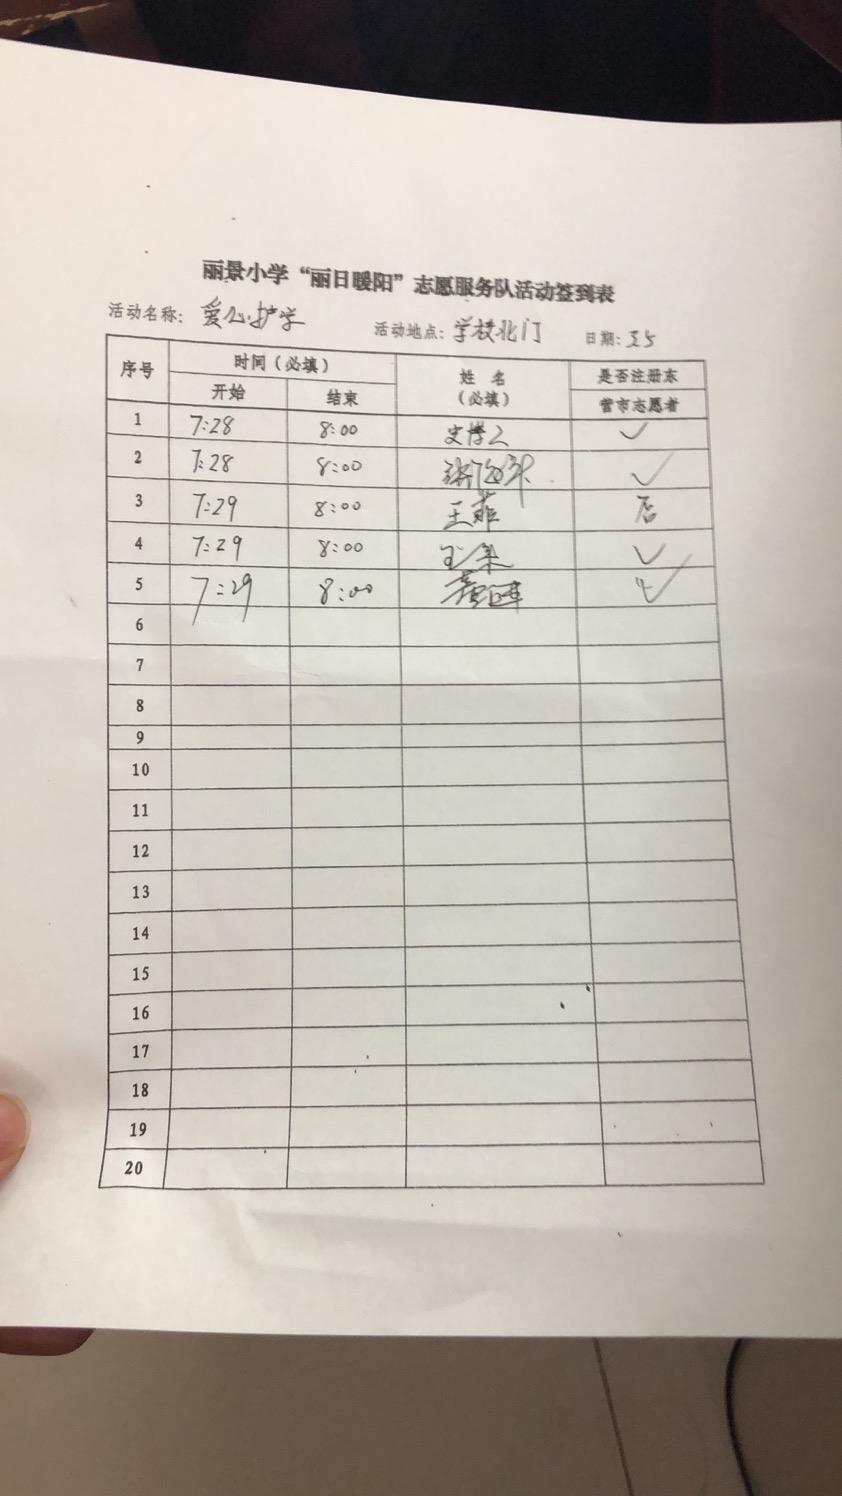 丽景小学“丽日暖阳”志愿服务队活动签到表
活动名称：爱心护学 活动地点：学校北门 日期：
序号 时间（必填） 姓 名（必填） 是否注册东营市志愿者
开始 结束
1 7:28 8:00 ✓
2 7:28 8:00 ✓
3 7:29 8:00 王菲 否
4 7:29 8:00 ✓
5 7:29 8:00 ✓
6
7
8
9
10
11
12
13
14
15
16
17
18
19
20